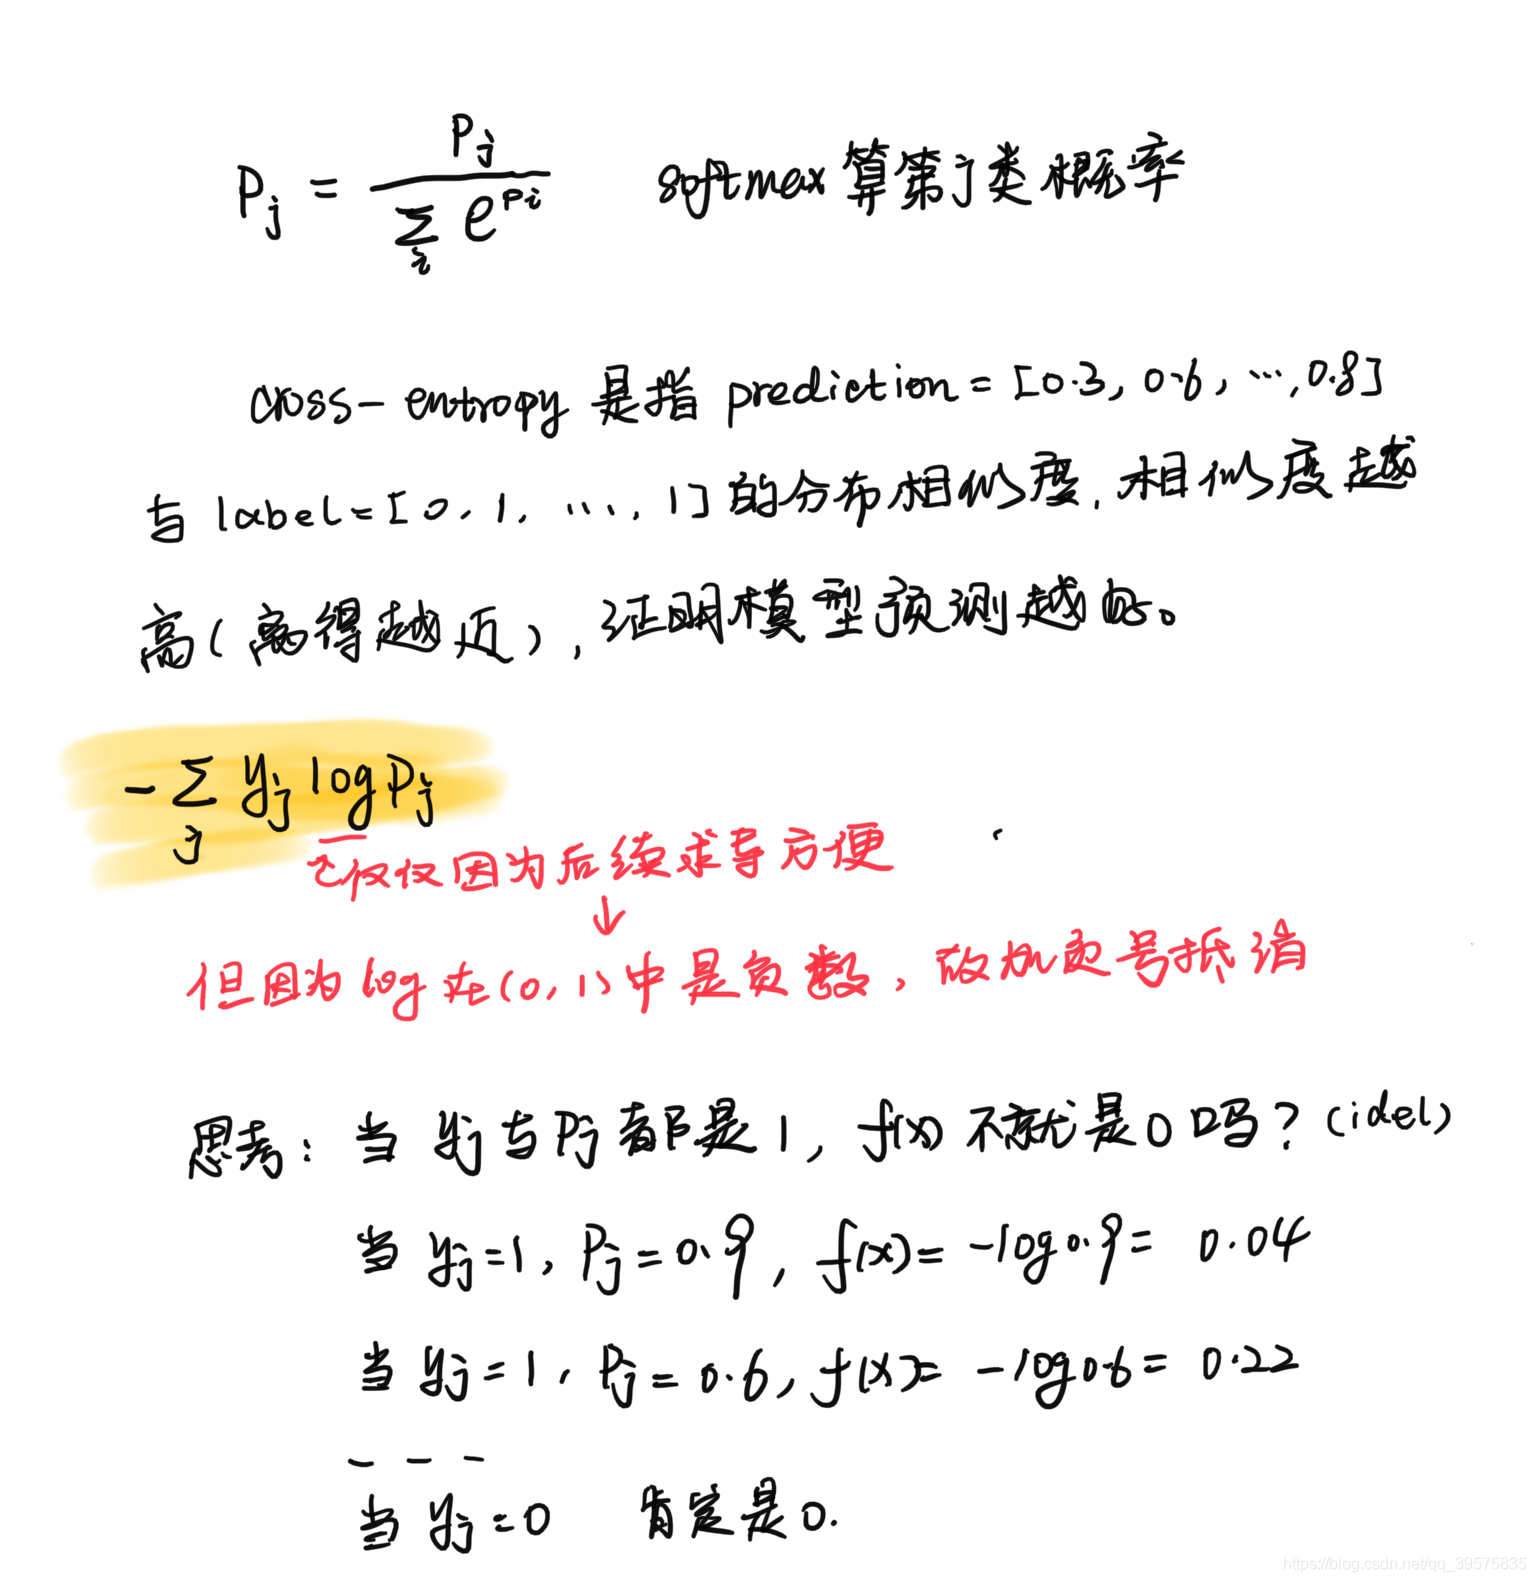 P_j = P_j / Σ_i e^{P_i} softmax 算第 j 类概率
cross-entropy 是指 prediction = [0.3, 0.6, ..., 0.8]
与 label = [0, 1, ..., 1] 的分布相似度, 相似度越
高(离得越近), 证明模型预测越好。
-Σ_j y_j log P_j
仅仅因为后续求导方便
↓
但因为 log 在(0,1)中是负数, 故加负号抵消
思考: 当 y_j 与 P_j 都是 1, f(x) 不就是 0 吗? (idel)
当 y_j = 1, P_j = 0.9, f(x) = -log 0.9 = 0.04
当 y_j = 1, P_j = 0.6, f(x) = -log 0.6 = 0.22
- - -
当 y_j = 0 肯定是 0.
https://blog.csdn.net/qq_39575835